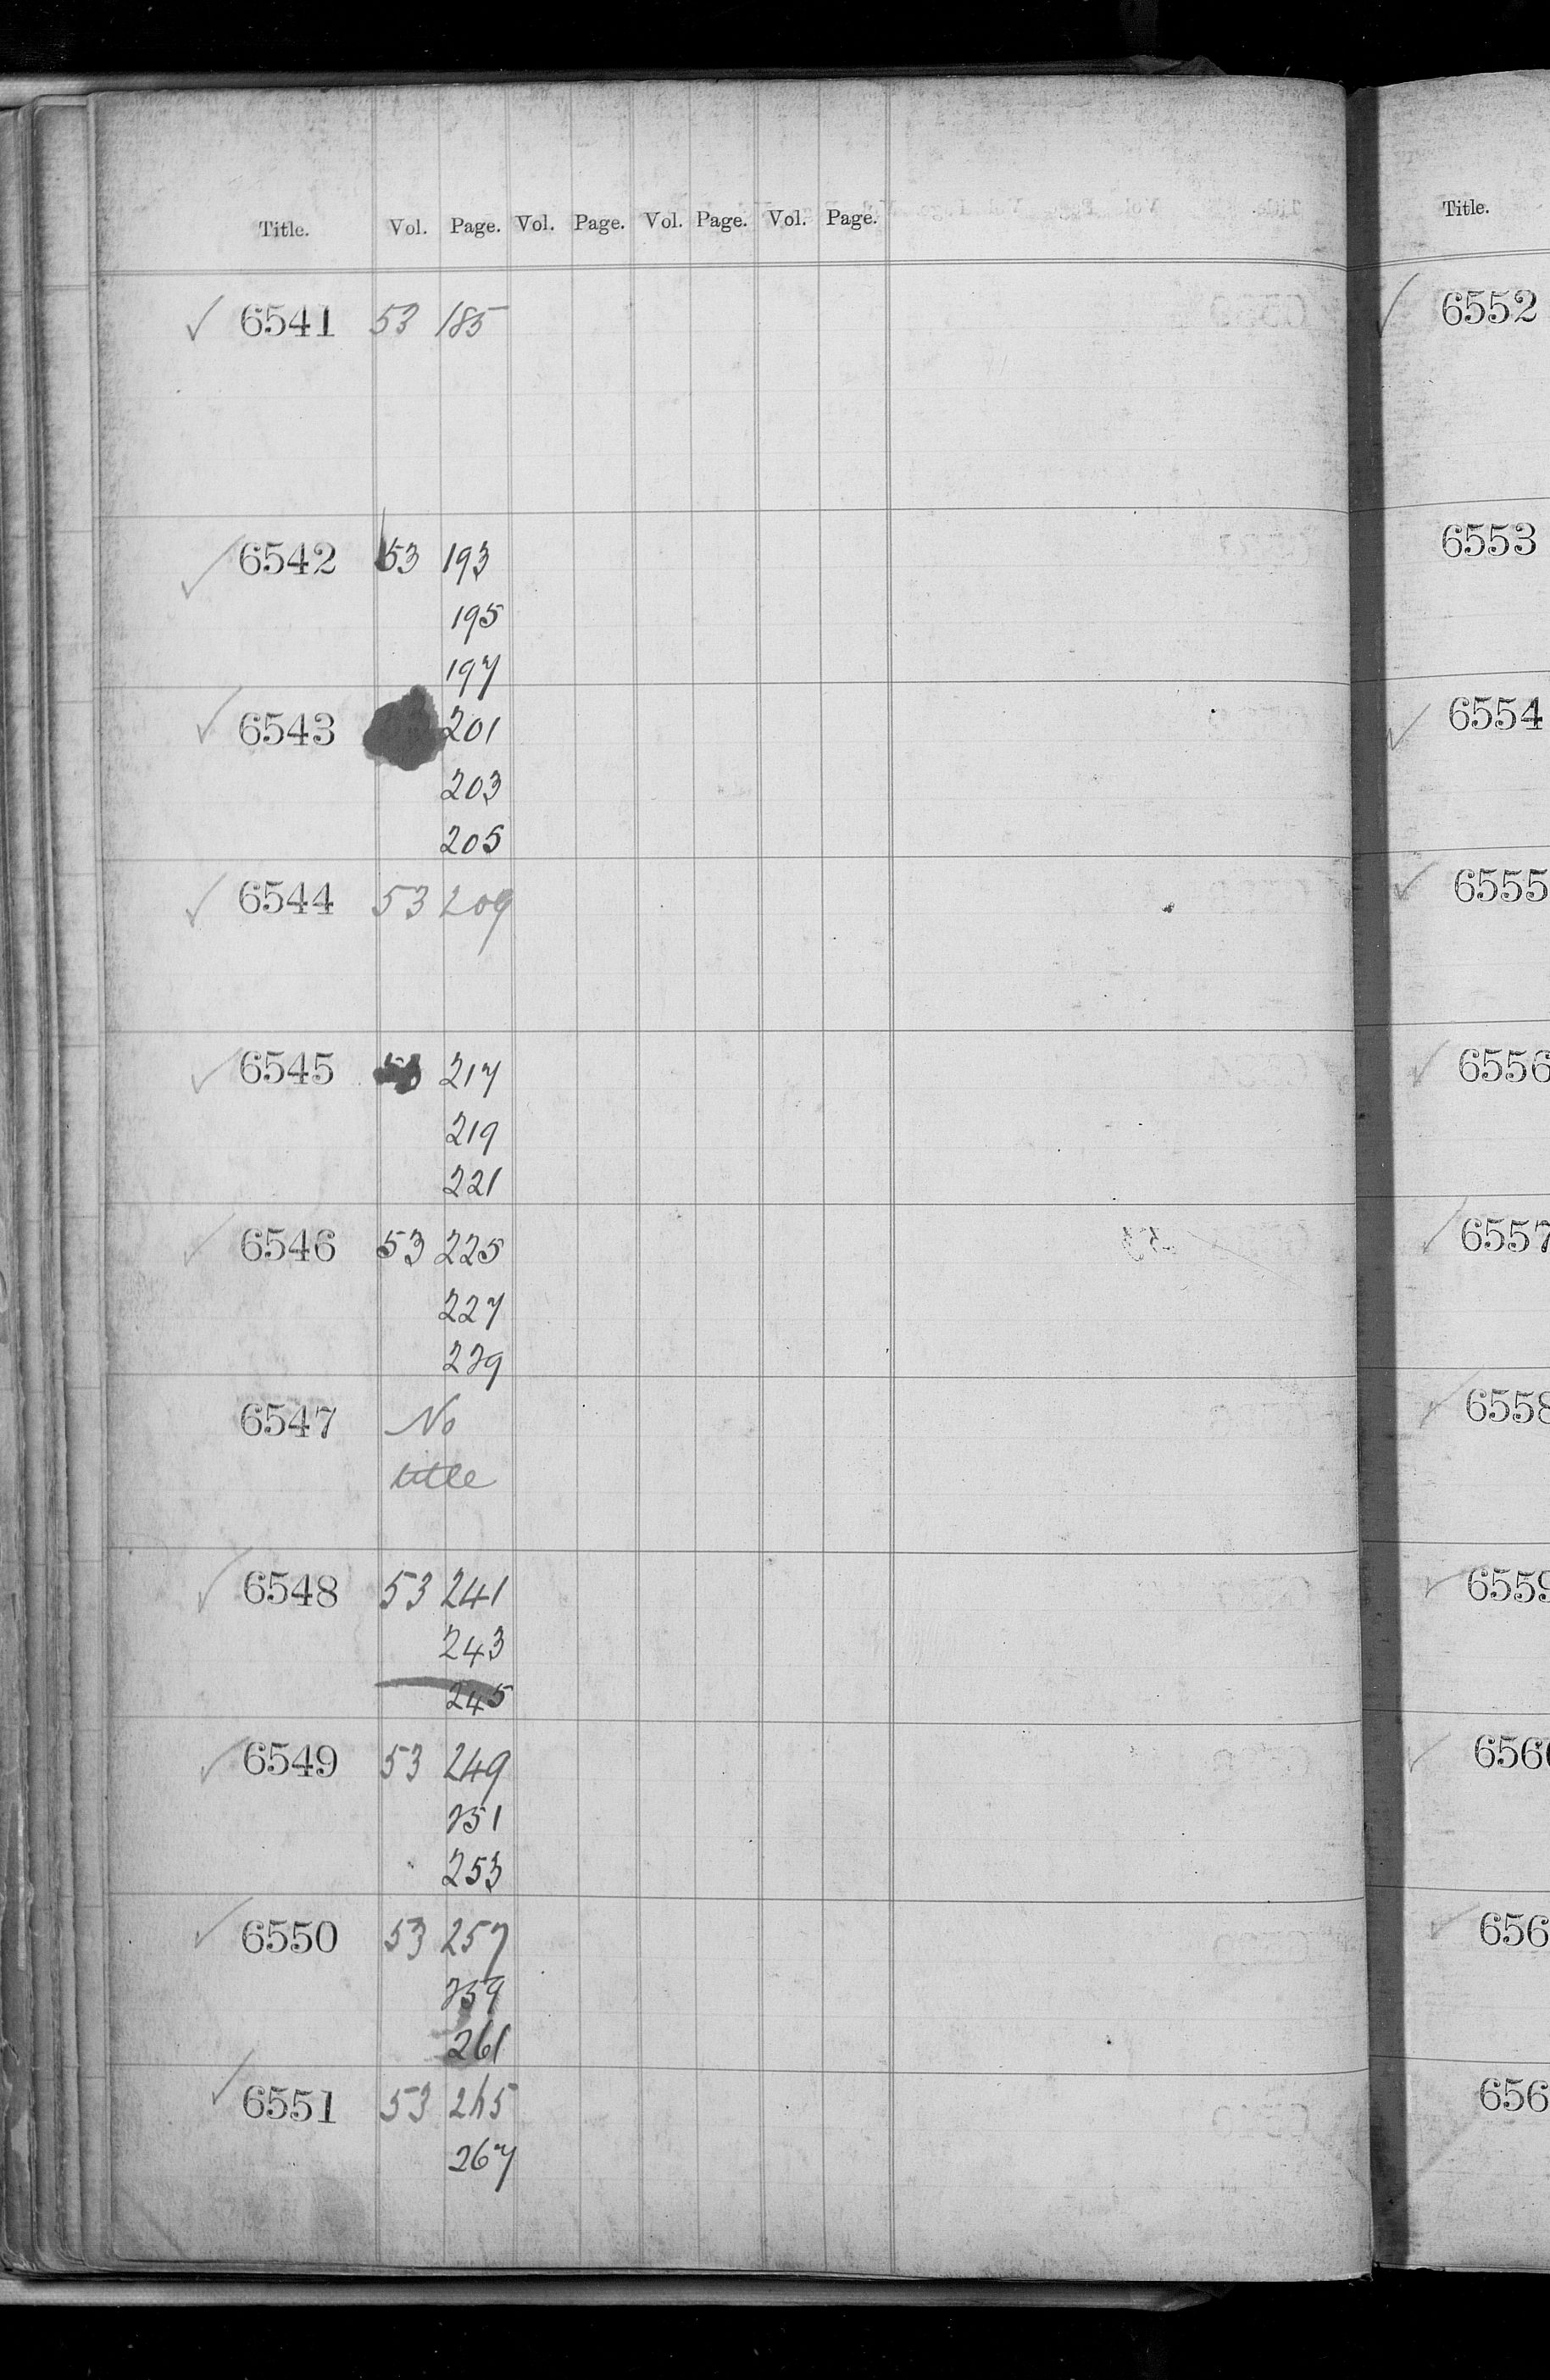 Title. Vol. Page. Vol. Page. Vol. Page. Vol. Page.
✓ 6541 53 185
✓ 6542 53 193
195
197
✓ 6543 201
203
205
✓ 6544 53 209
✓ 6545 53 217
219
221
✓ 6546 53 225
227
229
6547 No
title
✓ 6548 53 241
243
245
✓ 6549 53 249
251
253
✓ 6550 53 257
259
261
✓ 6551 53 265
267
Title.
✓ 6552
6553
✓ 6554
✓ 6555
✓ 6556
✓ 6557
✓ 6558
✓ 6559
✓ 656
✓ 656
656